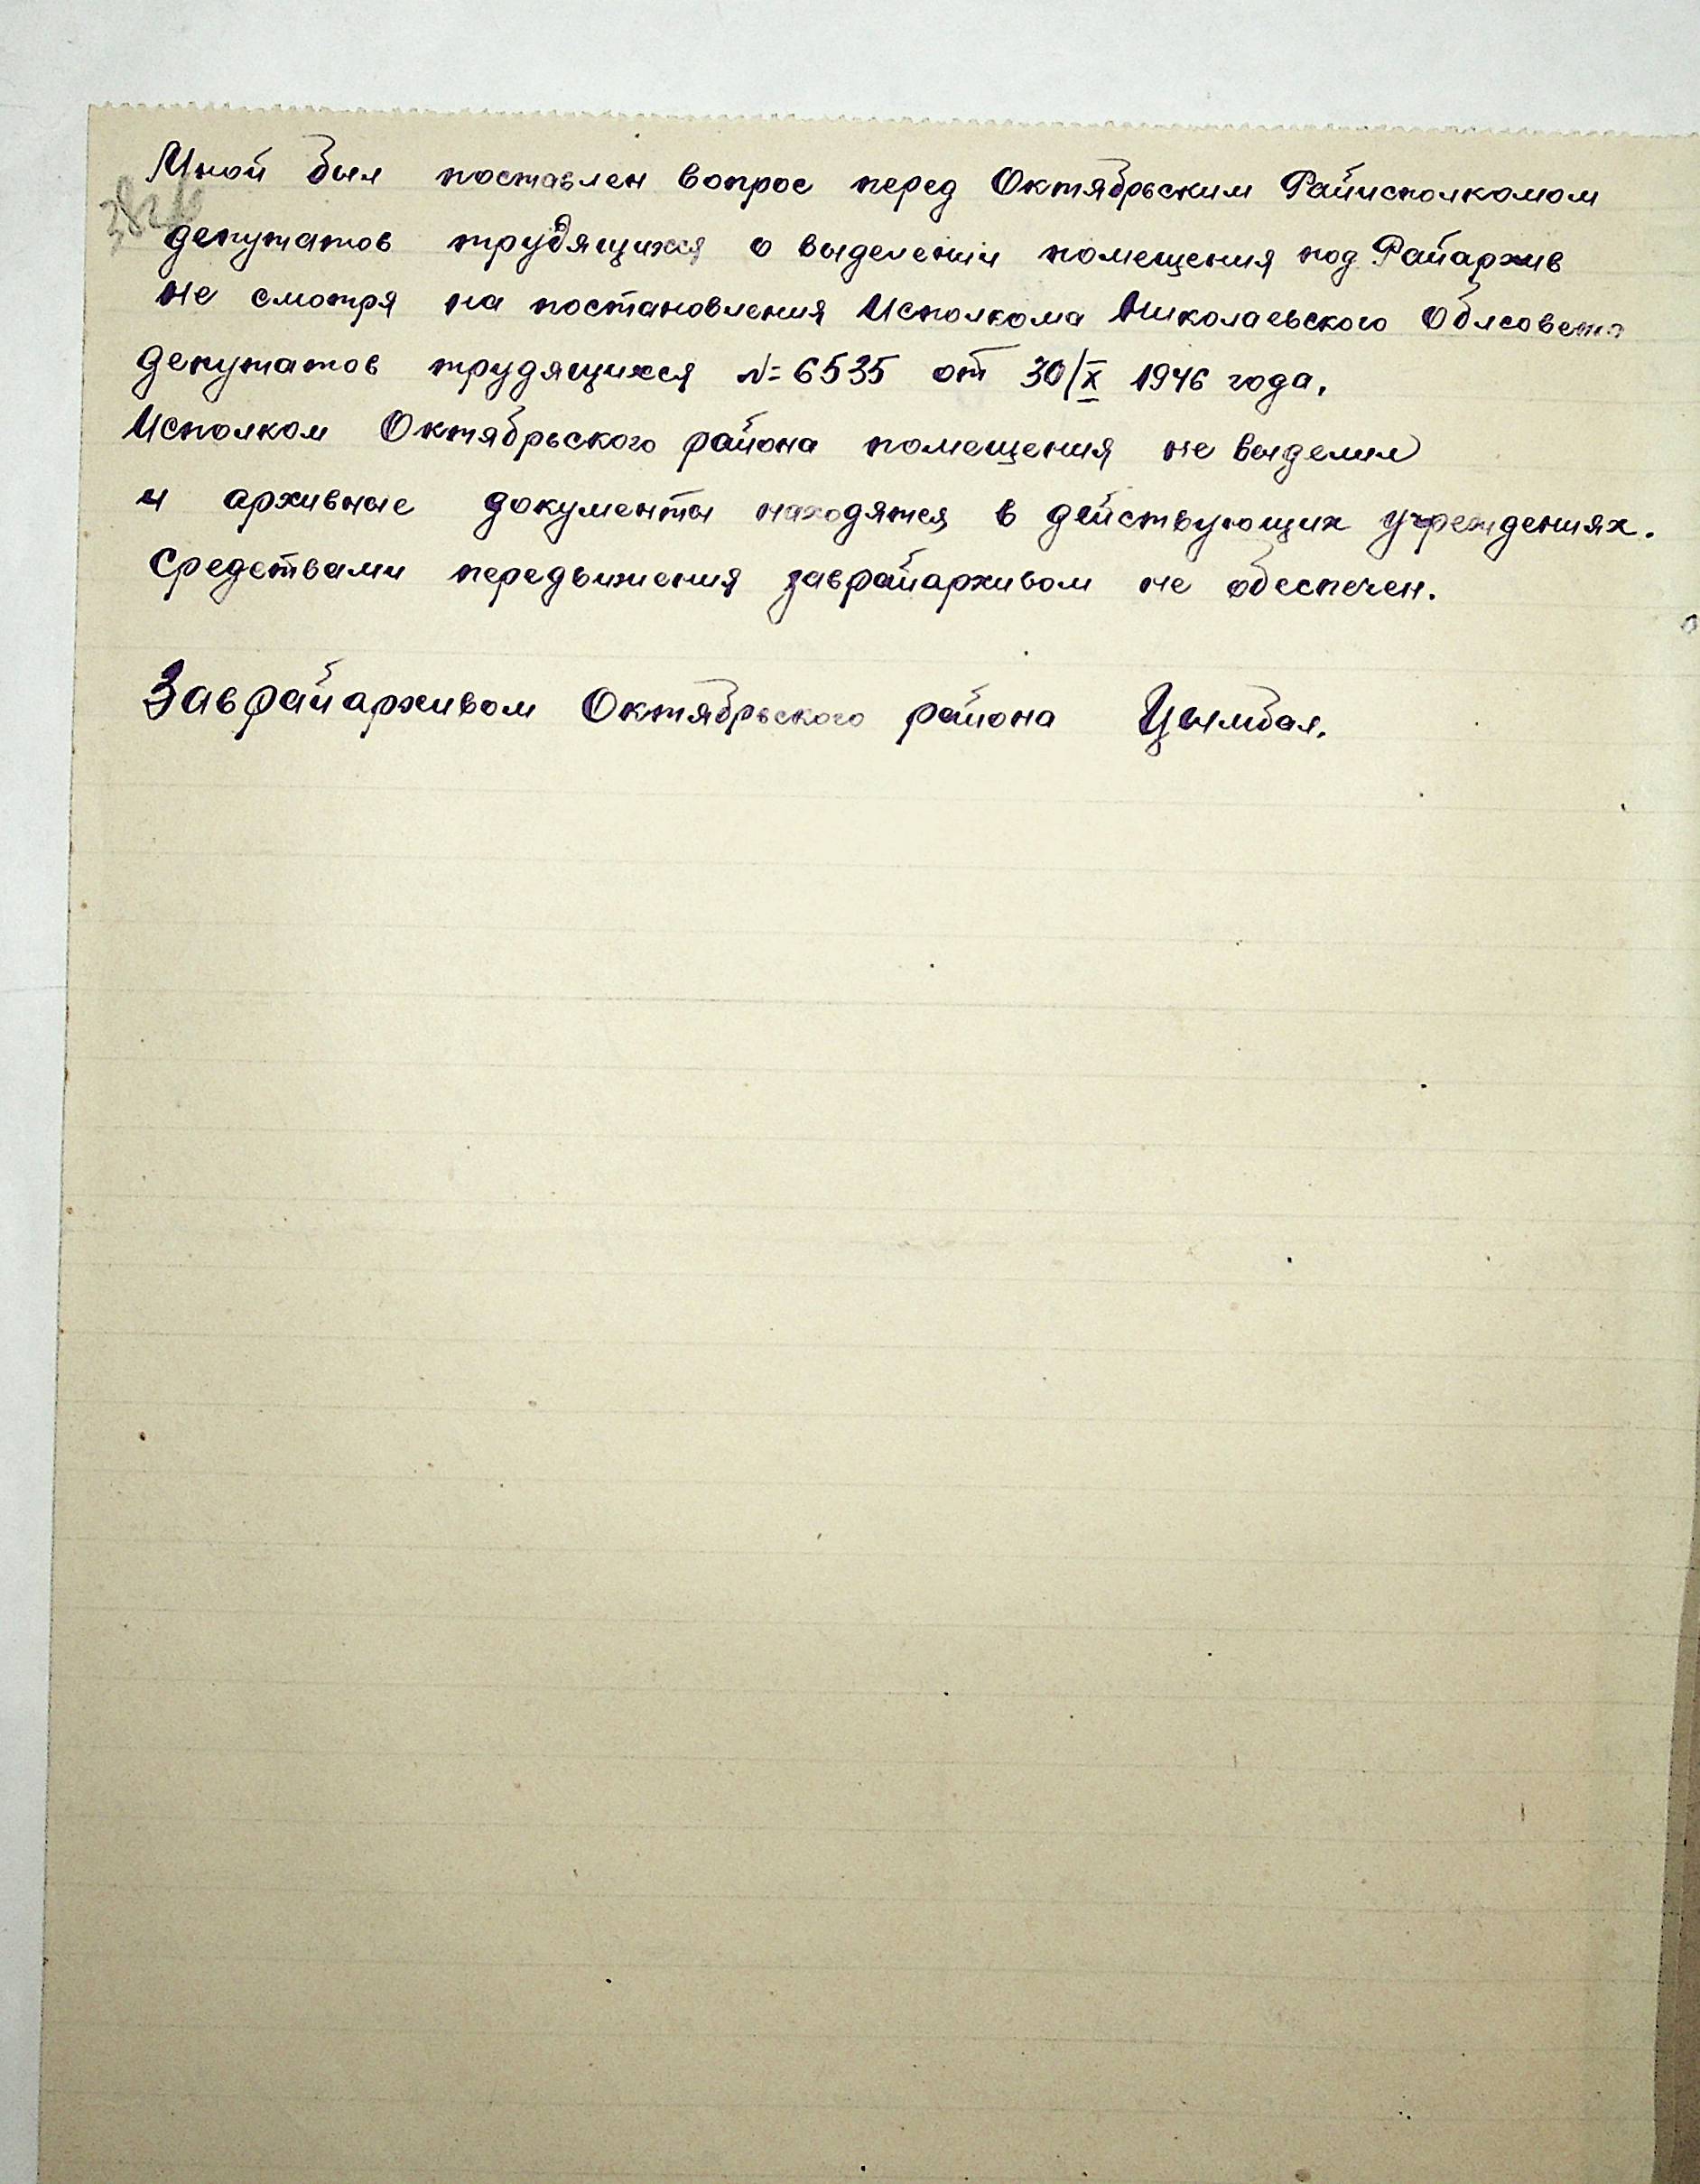 Мной был поставлен вопрос перед Октябрьским Райисполкомом
депутатов трудящихся о выделении помещения под Райархив
не смотря на постановления Исполкома Николаевского Облсовета
депутатов трудящихся №=6535 от 30/X 1946 года,
Исполком Октябрьского района помещения не выделил
и архивные документы находятся в действующих учреждениях.
Средствами передвижения заврайархивом не обеспечен.
Заврайархивом Октябрьского района Цымбал.